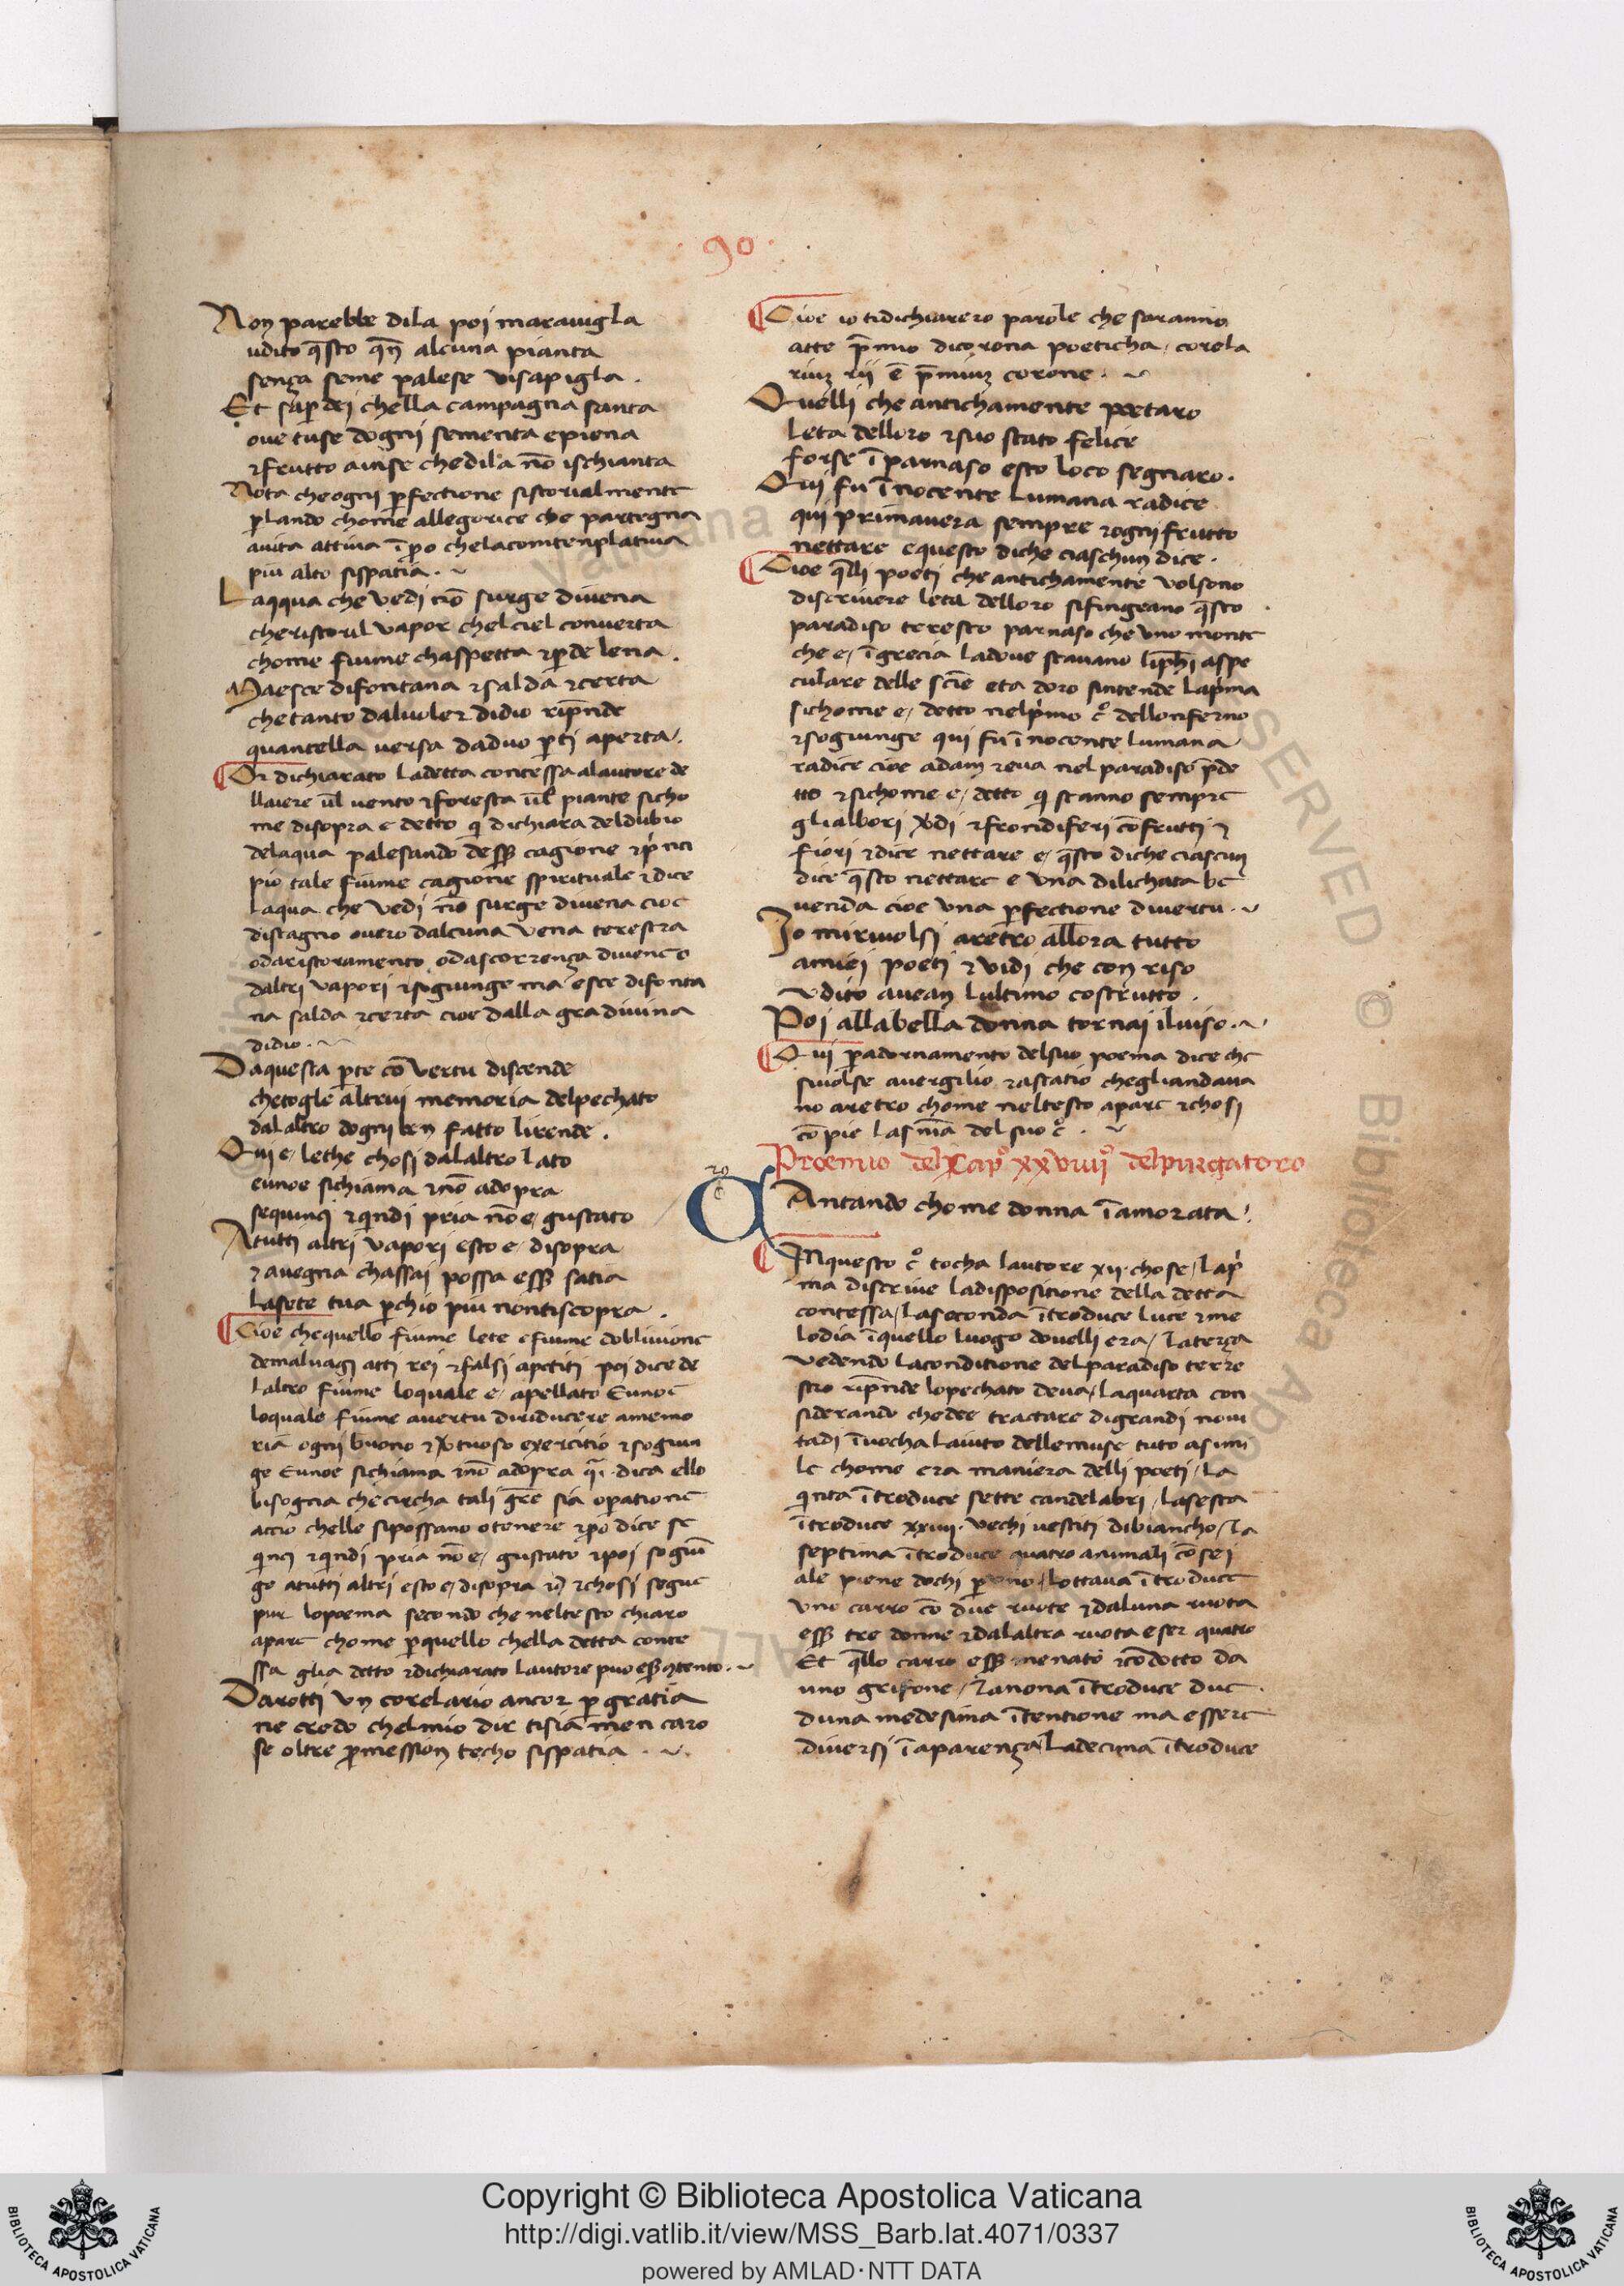 90
Non parebbe dila poi maraviglia
udito q̄sto qn̄ alcuna pianta
sença seme palese visapigla.
Et sap̄ dei chella campagna santa
ove tuse dogni sementa epiena
⁊frutto ainse chedila nō ischianta
Nota cheogni ꝑfectione sistorialmente
ꝑlando chome allegorice che partegna
avita attiva īꝑo chelacomtenplativa
piu alto sispatia.
Laqqua che vedi nō surge divena
cheristoril vapor chelciel converta
chome fiume chaspetta ⁊ꝑde lena.
Maesce difontana ⁊salda ⁊certa
chetanto dalvoler didio rip̄nde
quantella versa daduo ꝑti aperta.
Or dichiarato ladetta contessa alautore de
llaiere ūl vento ⁊foresta ūl piante sicho
me disopra e detto q̇ dichiara deldubio
delaqua palesando dess̄ cagione ⁊ṗnci
pio tale fiume cagione spirituale ⁊dice
laqua che vedi nō surge divena cioe
distagno overo dalcuna vena terestra
odaristoramento odascorrença divenō
daltri vapori ⁊sogiunge ma esce difonta
na salda ⁊certa cioe dalla gra divina
didio.
Daquesta ꝑte cō vertu discende
chetogle altrui memoria delpechato
dalaltro dogni ben fatto lirende.
Qui e lethe chosi dalaltro lato
eunoe sichiama ⁊nō adopra
sequinci ⁊q̇ndi pria nō e gustato
Atutti altri vapori esto e disopra
⁊avegna chassai possa ess̄ satia
lasete tua ꝑchio piu nontiscopra.
Cioe chequello fiume lete e fiume doblivione
demalvagi atti rei ⁊falsi apetiti poi dice de
laltro fiume loquale e apellato Eunoe
loquale fiume avertu diriducere amemo
ria ogni buono ⁊v̄tuoso exercitio ⁊sogiun
ge Eunoe sichiama ⁊nō adopra q̄i dica ello
bisogna checircha tali gr̄e sia operatione
accio chelle sipossano otenere ⁊ꝑo dice se
q̇nci ⁊q̇ndi pria nō e gustato ⁊poi sogiū
ge atutti altri esto e disopra ⁊chosi segue
pur lopoema secondo che neltesto chiaro
apare chome ꝑquello chella detta conte
ssa glia detto ⁊dichiarato lautore puo ess̄ ꝯtento.
Darotti un corelario ancor ꝑ gratia
ne credo chelmio dir tisia men caro
se oltre ꝓmession techo sispatia.
Cioe io tidichiarero parole che saranno
atte p̄mio dicorona poeticha corela
riuz rii ē p̄miuz corone.
Quelli che antichamente poetaro
leta delloro ⁊suo stato felice
forse īparnaso esto loco segnaro.
Qui fu īnocente lumana radice
qui primavera sempre ⁊ogni frutto
nettare e questo diche ciaschun dice.
Cioe q̄lli poeti che antichamente volsono
discrivere leta delloro sifingeano q̄sto
paradiso teresto parnaso che uno monte
che e īgrecia ladove stavano liph̄i aspe
culare delle sciē eta doro sintende laṗma
sichome e detto nelṗmo c̊ dellonferno
⁊sogiunge qui fu īnocente lumana
radice cioe adam ⁊eva nel paradiso p̄de
tto ⁊sichome e detto q̇ stanno sempre
glialbori v̄di ⁊frondiferi cōfrutti ⁊
fiori ⁊dice nettare e q̄sto diche ciascun
dice q̄sto nettare e una dilichata be
venda cioe una ꝑfectione divertu.
Io mirivolsi aretro allora tutto
amiei poeti ⁊vidi che con riso
udito avean lultimo costrutto.
Poi allabella donna tornai ilviso.
Qui ꝑadornamento delsuo poema dice che
sivolse avergilio ⁊astatio chegliandava
no aretro chome neltesto apare ⁊chosi
cōpie lasn̄ia del suo c̊.
Proemio del Cap̊ xxviiiị̊ delpurgatoro
CAntando chome donna īamorata.
INquesto c̊ tocha lautore xii chose laṗ
ma discrive ladispositione della detta
contessa lasoconda ītroduce luce ⁊me
lodia īquello luogo dovelli era laterça
vedendo laconditione delparadiso terre
stro rip̄nde lopechato deva laquarta con
siderando chedee tractare digrandi novi
tadi īvocha laiuto dellemuse tuto asimi
le chome era maniera delli poeti la
q̇nta ītroduce sette candelabri lasesta
ītroduce xxiiii vechi vestiti dibiancho la
septima ītroduce quatro animali cō sei
ale piene dochi ꝑ uno lottava ītroduce
uno carro cō due ruote ⁊daluna ruota
ess̄ tre donne ⁊dalaltra ruota eser quatro
Et q̄llo carro ess̄ menato ⁊cōdotto da
uno grifone lanona ītroduce due
duna medesima ītentione ma essere
diversi īaparença ladecima ītroduce
Copyright © Biblioteca Apostolica Vaticana
http://digi.vatlib.it/view/MSS_Barb.lat.4071/0337
powered by AMLAD·NTT DATA
BIBLIOTECA APOSTOLICA VATICANA
BIBLIOTECA APOSTOLICA VATICANA